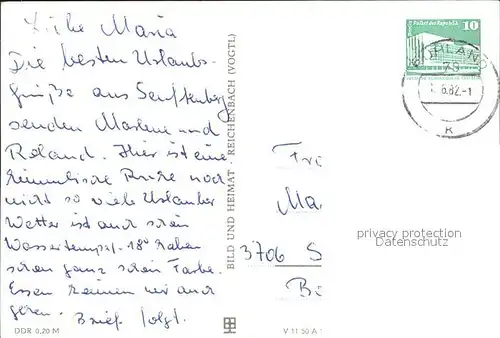 Liebe Maria
Die besten Urlaubs-
grüße aus Senftenberg
senden Marlene und
Roland. Hier ist eine
himmlische Ruhe noch
nicht so viele Urlauber
Wetter ist auch schön
Wassertemp. 18° haben
schon ganz schön Farbe.
Essen können wir auch
gern.
Brief folgt.
DDR 0,20 M
BILD UND HEIMAT · REICHENBACH (VOGTL)
V 11 50 A
Palast der Republik
10
79
6.82.-1
K
Fr
Ma
3706 S
B
privacy protection
Datenschutz